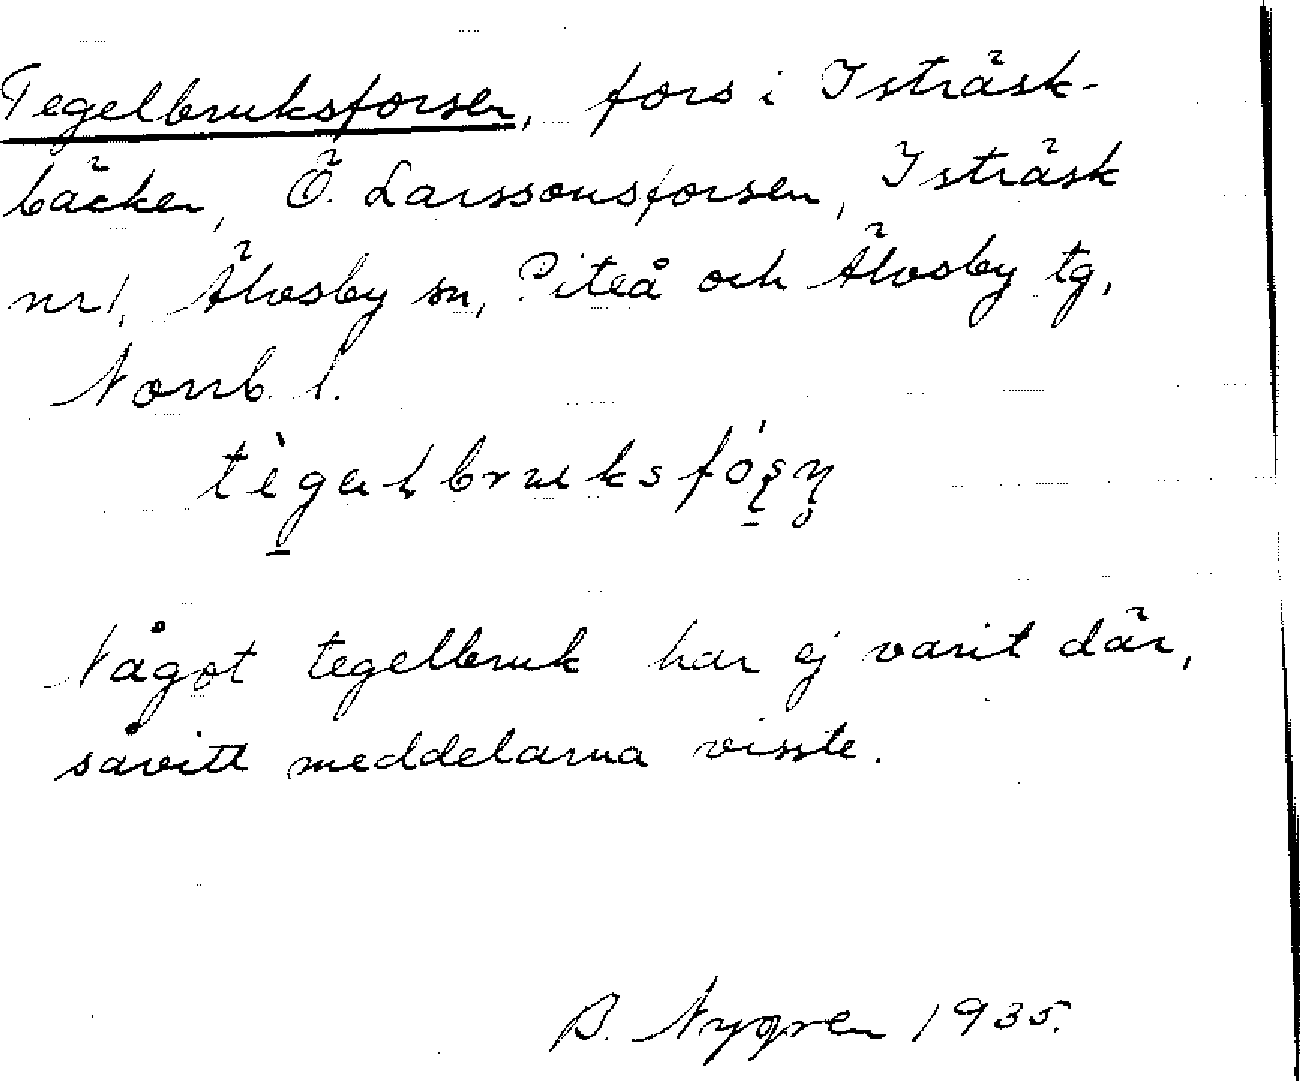 Tegelbruksforsen, fors i Isträsk-
bäcken, Ö. Larssonsforsen, Isträsk
nr 1, Älvsby sn, Piteå och Älvsby tg,
Norrb. l.
Något tegelbruk har ej varit där,
såvitt meddelarna visste.
B. Nygren 1935.